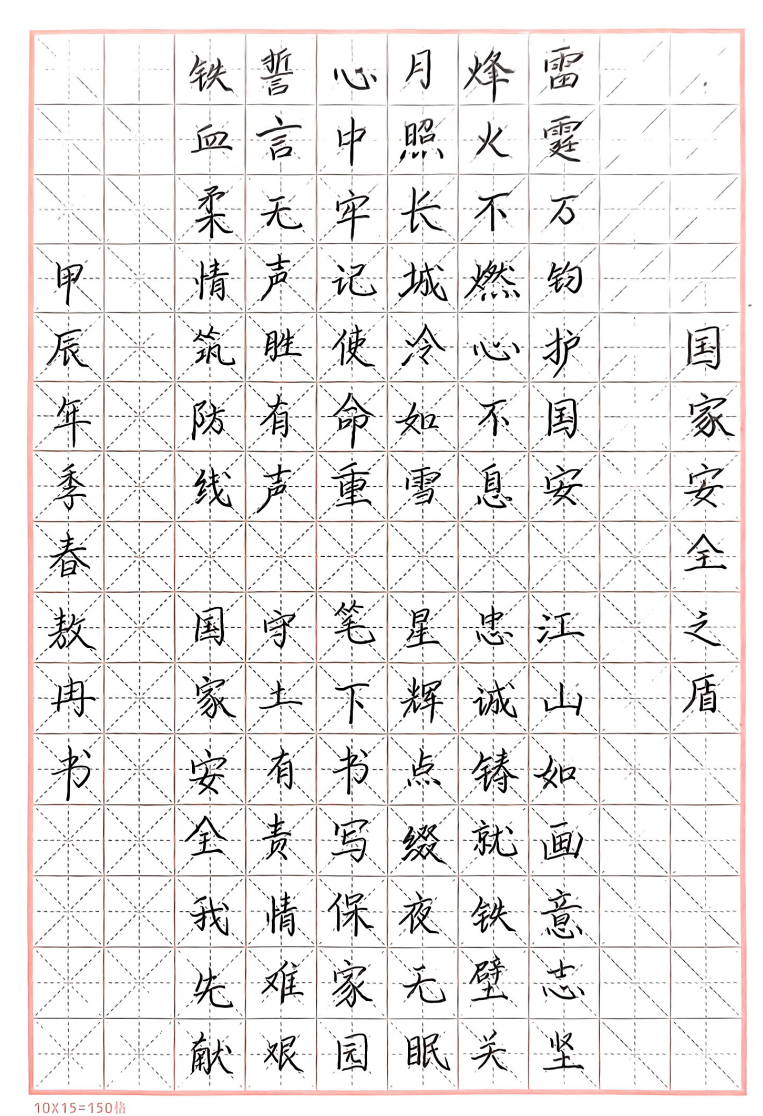 国家安全之盾
雷霆万钧护国安 江山如画意志坚
烽火不燃心不息 忠诚铸就铁壁关
月照长城冷如雪 星辉点缀夜无眠
心中牢记使命重 笔下书写保家园
誓言无声胜有声 守土有责情难艰
铁血柔情筑防线 国家安全我先献
甲辰年季春敖冉书
10X15=150格